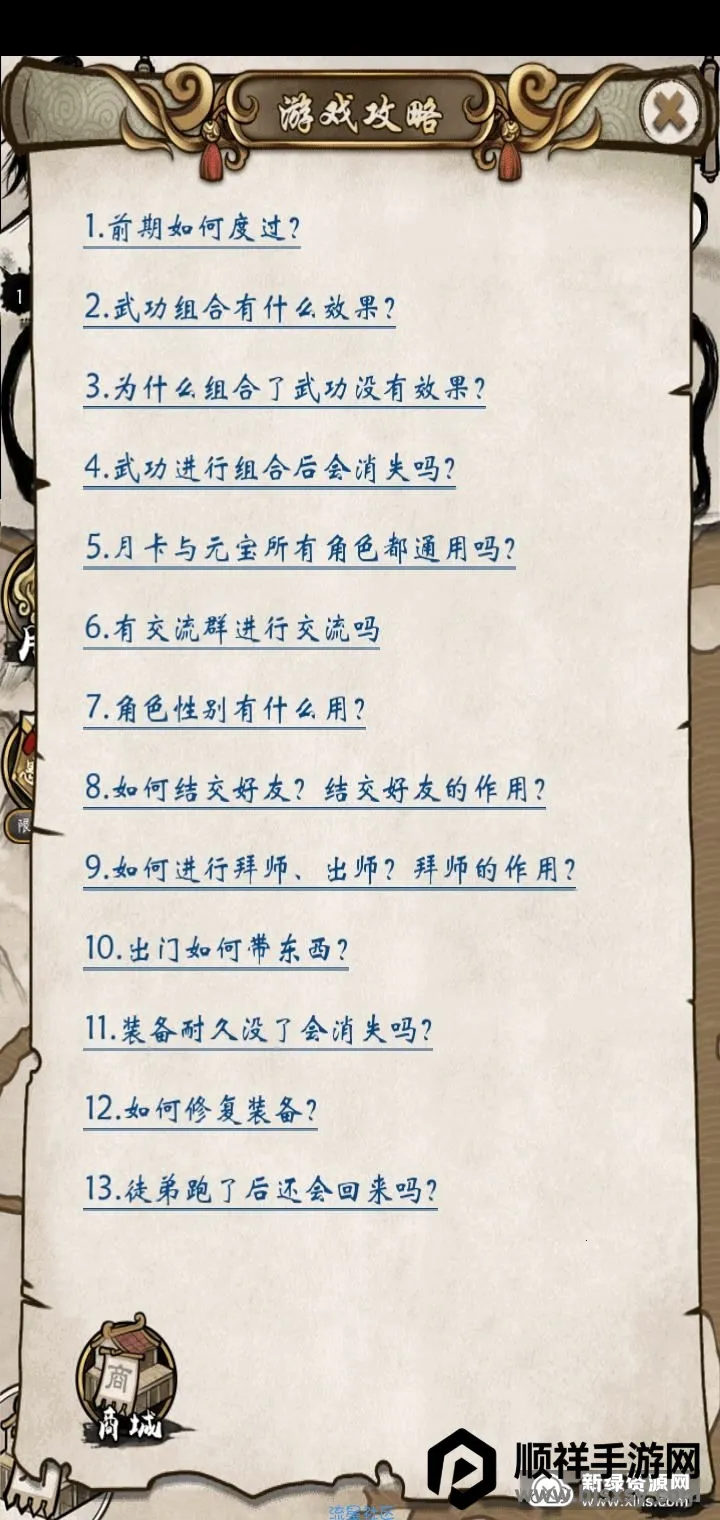 游戏攻略
1.前期如何度过?
1
2.武功组合有什么效果?
3.为什么组合了武功没有效果?
4.武功进行组合后会消失吗?
5.月卡与元宝所有角色都通用吗?
6.有交流群进行交流吗
7.角色性别有什么用?
8.如何结交好友? 结交好友的作用?
限
9.如何进行拜师、出师? 拜师的作用?
10.出门如何带东西?
11.装备耐久没了会消失吗?
12.如何修复装备?
13.徒弟跑了后还会回来吗?
商
商城
顺祥手游网
新绿资源网
www.xlus.com